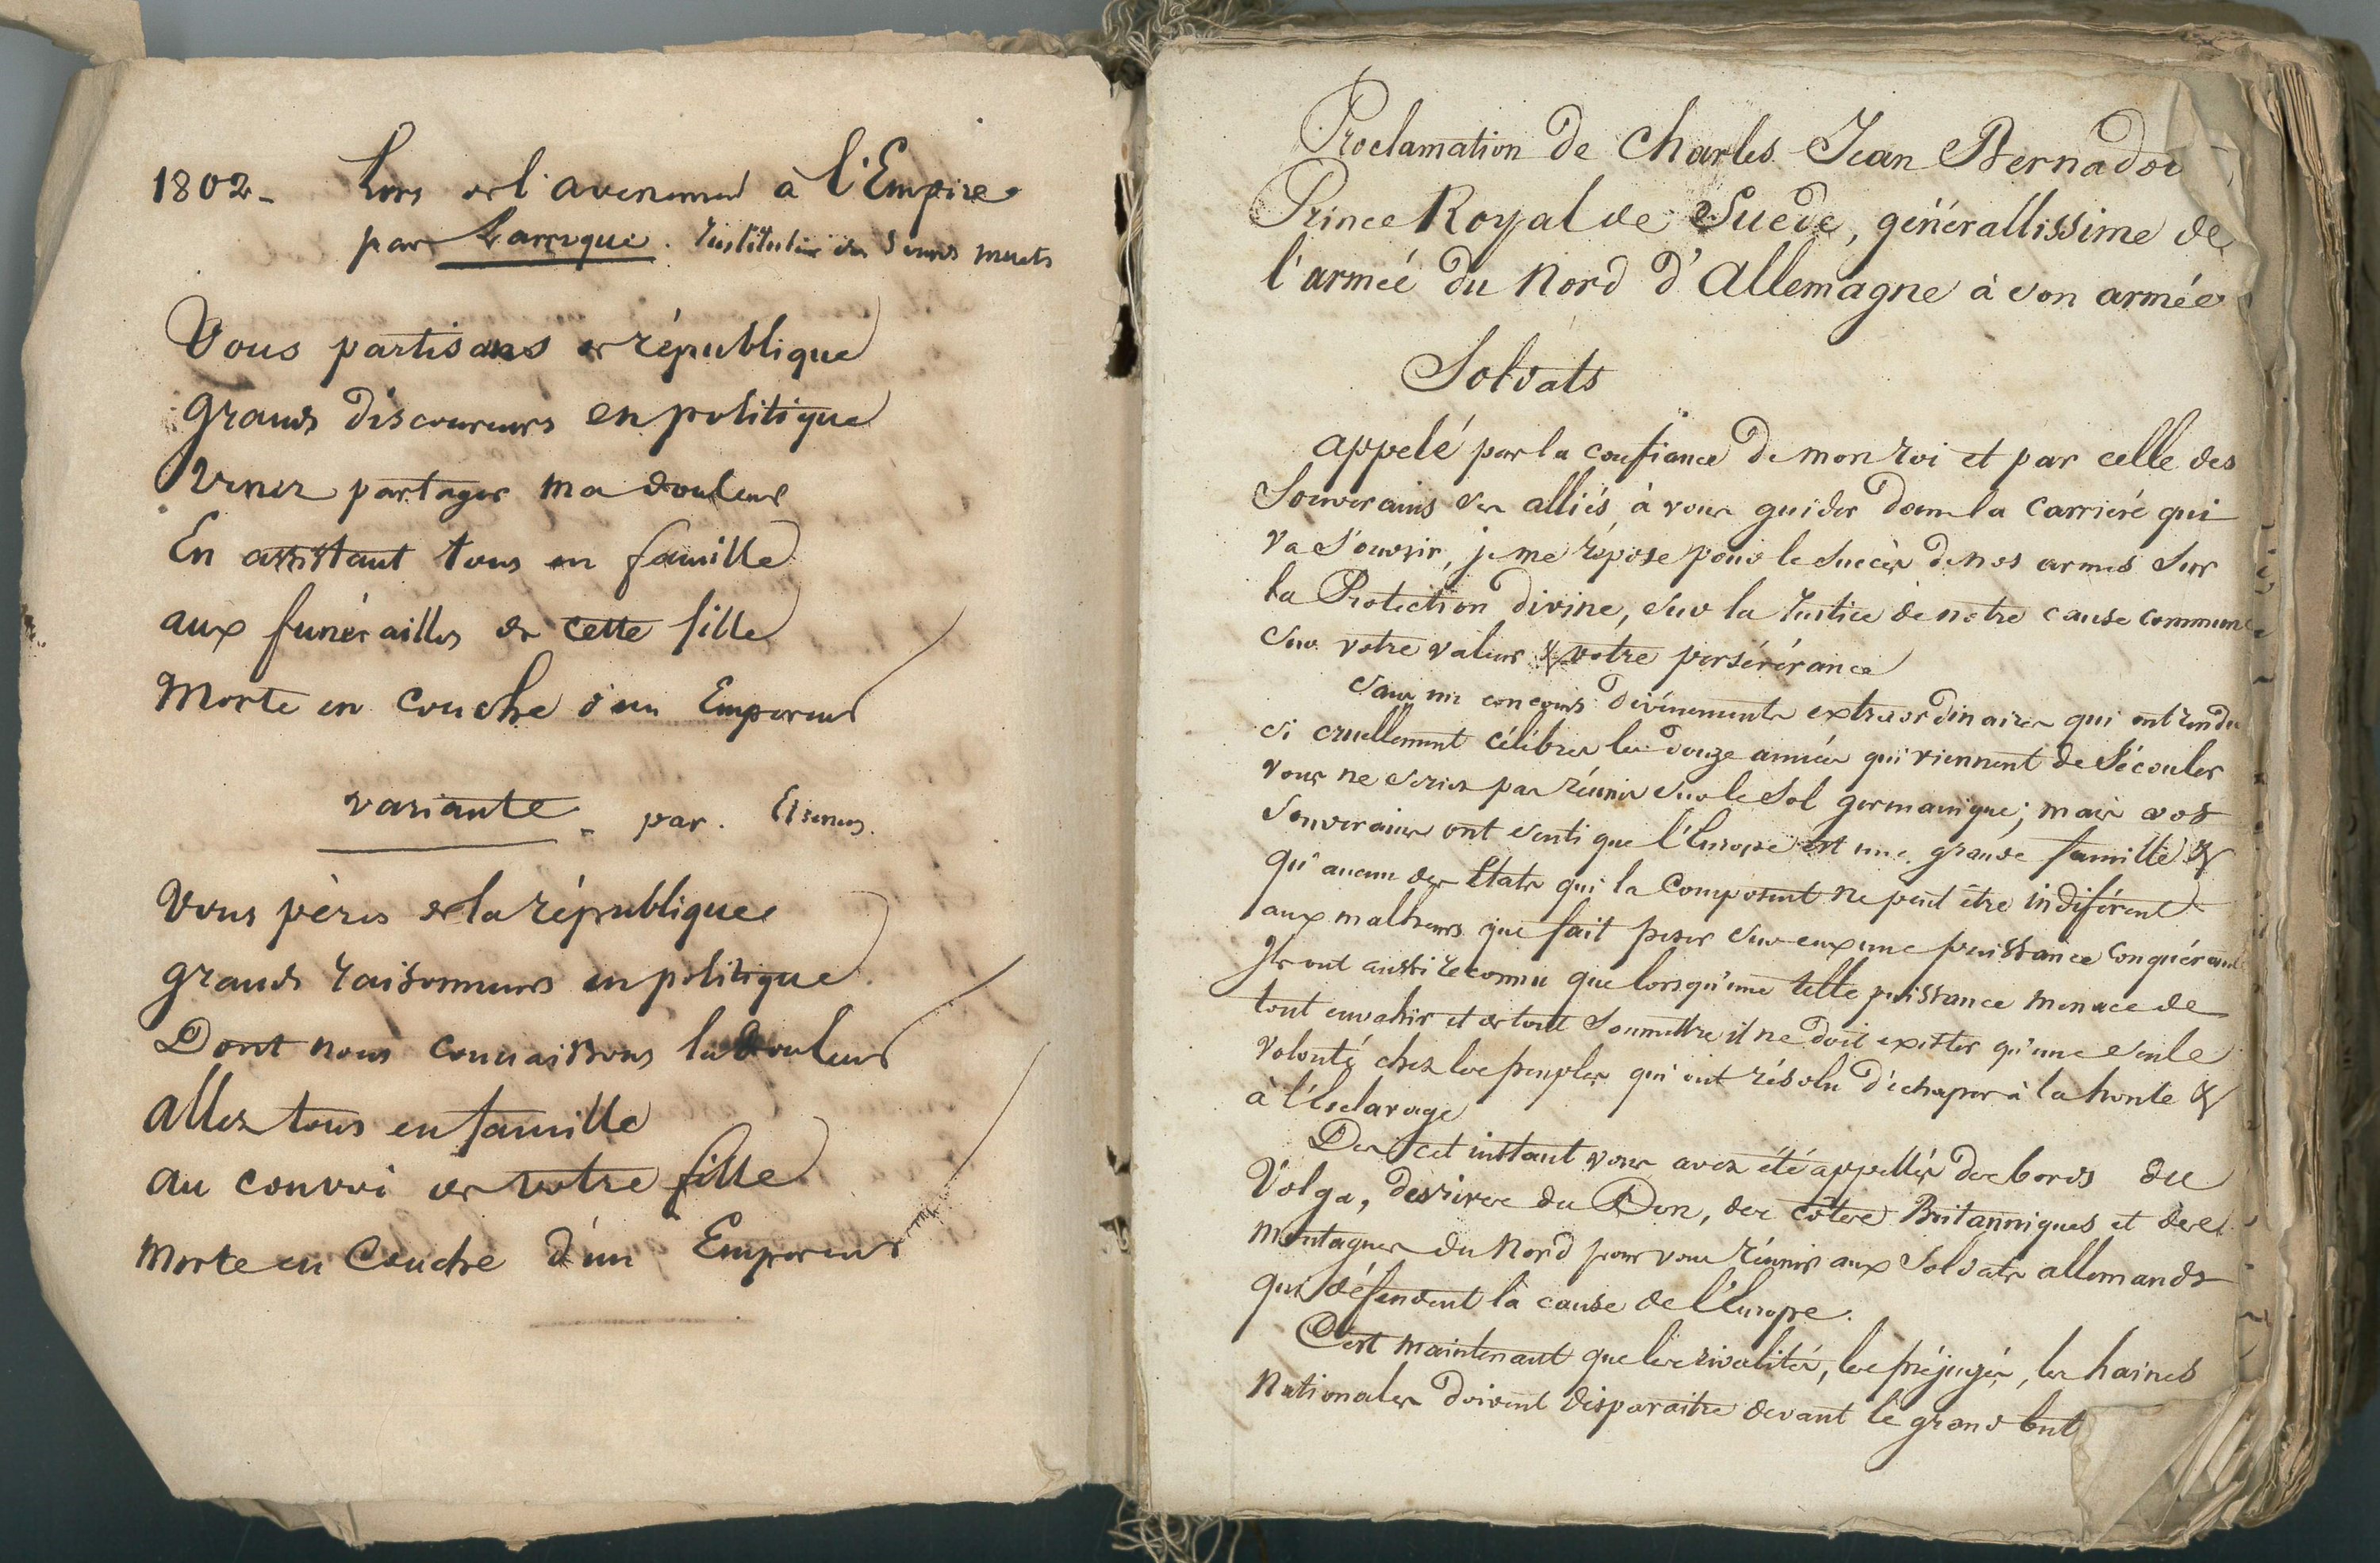 1802 - Lors de l'avenement à l'Empire
par Larroque. Instituteur des Sourds muets
Vous partisans de république
Grands discoureurs en politique
Venez partager ma douleur
En assistant tous en famille
aux funérailles de cette fille
Morte en couche d'un Empereur
variante - par.
Vous pères de la république
grands raisonneurs en politique
Dont nous connaissons la douleur
allez tous en famille
au convoi de votre fille
Morte en Couche d'un Empereur
Proclamation de Charles Jean Bernadot
Prince Royal de Suède, générallissime de
l'armée du Nord d'Allemagne à son armée
Soldats
appelé par la confiance de mon roi et par celle des
Souverains ses alliés, à vous guider dans la carrière qui
va s'ouvrir, je me repose pour le succès de nos armes sur
la Protection divine, sur la Justice de notre cause commune
sur votre valeur & votre persévérance
Sans un concours d'évènements extraordinaires qui ont rendu
si cruellement célèbres les douze années qui viennent de s'écouler
vous ne seriez pas réunis sur le sol germanique; mais vos
Souverains ont senti que l'Europe est une grande famille &
qu'aucun des Etats qui la composent ne peut être indiférent
aux malheurs que fait peser sur eux une puissance conquérante
Ils ont aussi reconnu que lorsqu'une telle puissance menace de
tout envahir et de tout soumettre il ne doit exister qu'une seule
volonté chez les peuples qui ont résolu d'échaper à la honte &
à l'Esclavage
Des cet instant vous avez été appellés des bords du
Volga, des rives du Don, des côtes Britanniques et des
montagnes du Nord pour vous réunir aux Soldats allemands
qui défendent la cause de l'Europe.
C'est maintenant que les rivalités, les préjugés, les haines
Nationales doivent disparaitre devant le grand but